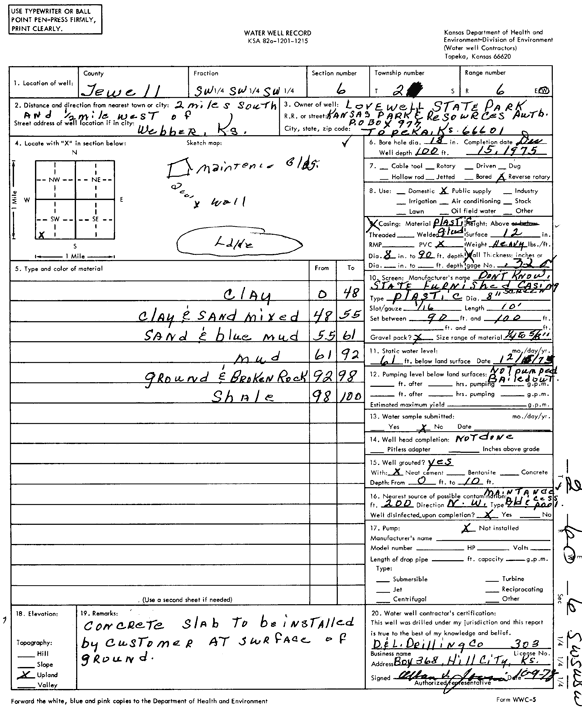 USE TYPEWRITER OR BALL
POINT PEN-PRESS FIRMLY,
PRINT CLEARLY.
WATER WELL RECORD
KSA 82a-1201-1215
Kansas Department of Health and
Environment-Division of Environment
(Water well Contractors)
Topeka, Kansas 66620
1. Location of well:
County
Jewell
Fraction
SW 1/4 SW 1/4 SW 1/4
Section number
6
Township number
T 2 S
Range number
R 6 E/W
2. Distance and direction from nearest town or city: 2 miles south
AND 1/2 mile west of
Street address of well location if in city:
Webber, Ks.
3. Owner of well: LOVEWELL STATE PARK
R.R. or street: KANSAS PARK & RESOURCES Auth.
PO BOX 977
City, state, zip code: TOPEKA, KS. 66601
4. Locate with "X" in section below:
Sketch map:
N
NW NE
W E
SW SE
X
S
1 Mile
1 Mile
maintence Bldg.
200'
x well
Lake
6. Bore hole dia. 18 in. Completion date Dec
Well depth 100 ft. 15, 1975
7. Cable tool Rotary Driven Dug
Hollow rod Jetted Bored X Reverse rotary
8. Use: Domestic X Public supply Industry
Irrigation Air conditioning Stock
Lawn Oil field water Other
X Casing: Material PLASTIC Height: Above or below
Threaded Welded glued Surface 12 in.
RMP PVC X Weight HEAVY lbs./ft.
Dia. 8 in. to 90 ft. depth Wall Thickness: inches or
Dia. in. to ft. depth gage No. .320
10. Screen: Manufacturer's name DON'T KNOW.
STATE FURNISHED CASING
SCREEN
Type PLASTIC Dia. 8"
Slot/gauze 1/16 Length 10'
Set between 90 ft. and 100 ft.
ft. and ft.
Gravel pack? X Size range of material
11. Static water level: mo./day/yr.
61 ft. below land surface Date 12/15/75
12. Pumping level below land surfaces: NOT pumped
Bailed out
ft. after hrs. pumping g.p.m.
ft. after hrs. pumping g.p.m.
Estimated maximum yield g.p.m.
13. Water sample submitted: mo./day/yr.
Yes X No Date
14. Well head completion: NOT DONE
Pitless adapter Inches above grade
15. Well grouted? yes
With: X Neat cement Bentonite Concrete
Depth: From 0 ft. to 10 ft.
16. Nearest source of possible contamination: MAINTANCE
ft. 200 Direction N.W. Type Bldg cess pool
Well disinfected upon completion? X Yes No
17. Pump: X Not installed
Manufacturer's name
Model number HP Volts
Length of drop pipe ft. capacity g.p.m.
Type:
Submersible Turbine
Jet Reciprocating
Centrifugal Other
5. Type and color of material From To
CLAY 0 48
CLAY & SAND mixed 48 55
SAND & blue mud 55 61
mud 61 92
GROUND & BROKEN ROCK 92 98
Shale 98 100
(Use a second sheet if needed)
18. Elevation:
Topography:
Hill
Slope
X Upland
Valley
19. Remarks:
CONCRETE SLAB TO be installed
by CUSTOMER AT SURFACE OF
GROUND.
20. Water well contractor's certification:
This well was drilled under my jurisdiction and this report
is true to the best of my knowledge and belief.
D&L Drilling Co 303
Business name License No.
Address Box 368, Hill City, Ks.
Signed
Authorized representative
Forward the white, blue and pink copies to the Department of Health and Environment
Form WWC-5
2 6 W 6 SW SW SW
E
Sec
1/4 1/4 1/4